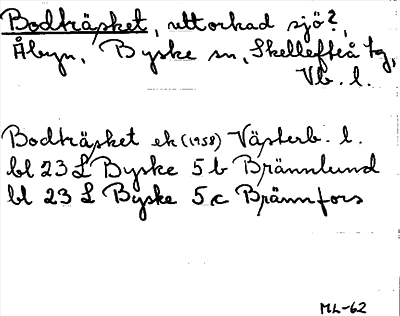 Bodträsket, uttorkad sjö?,
Åbyn, Byske sn, Skellefteå tg,
Vb. l.
Bodträsket ek (1958) Västerb. l.
bl 23 L Byske 5 b Brännlund
bl 23 L Byske 5 c Brännfors
ML-62